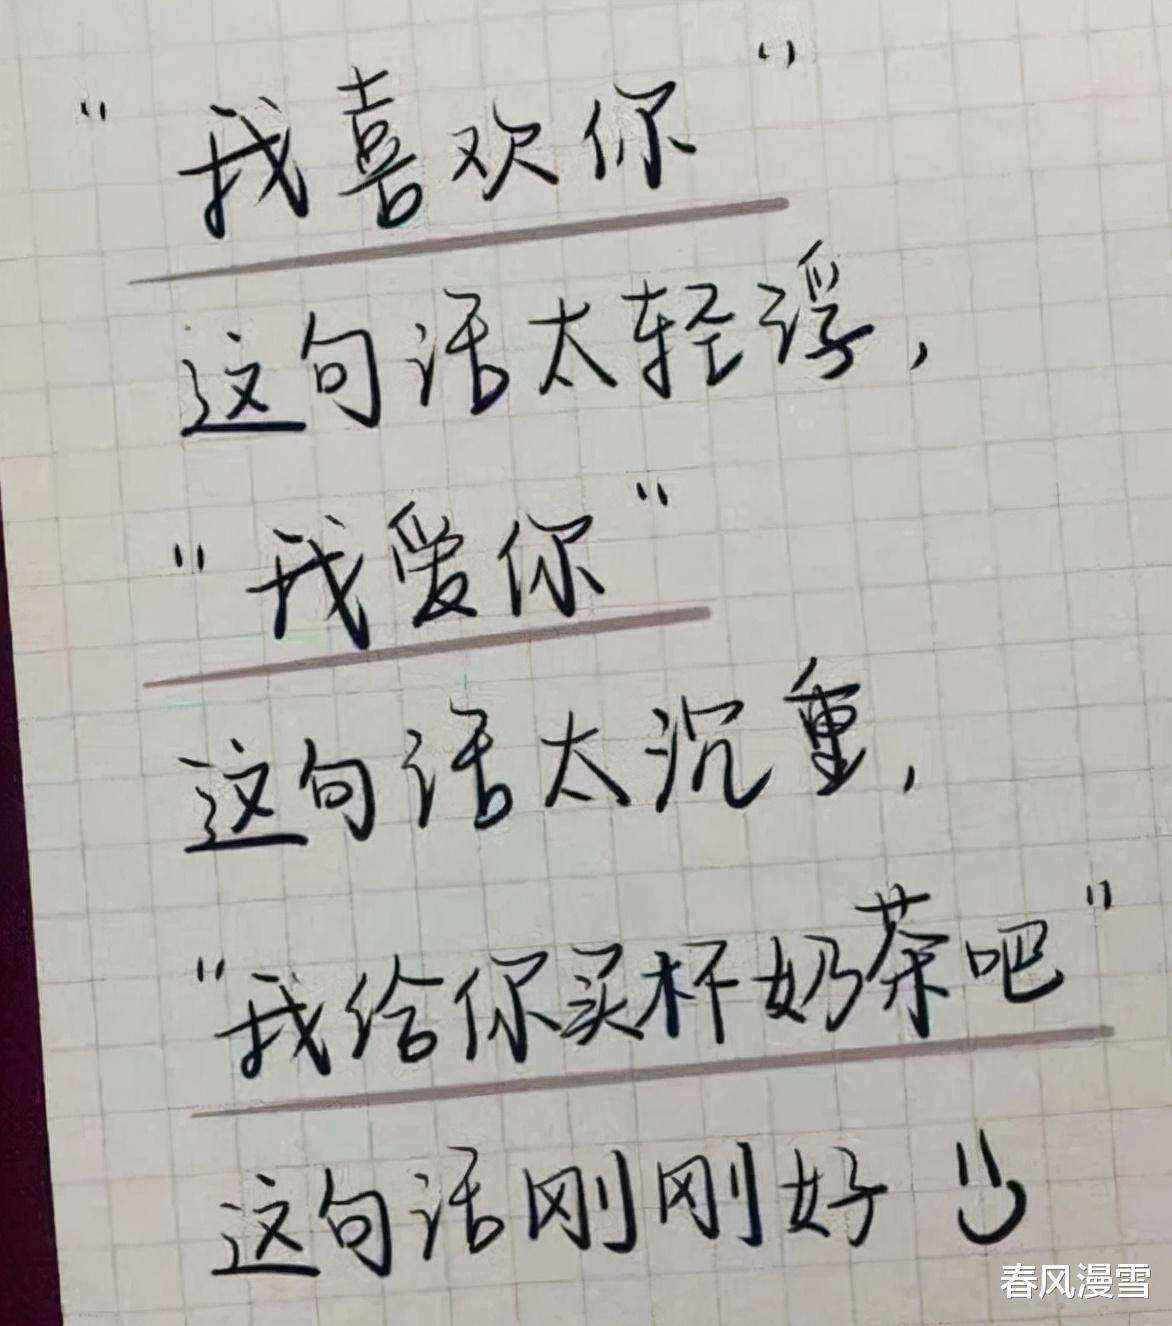 “我喜欢你”
这句话太轻浮，
“我爱你”
这句话太沉重，
“我给你买杯奶茶吧”
这句话刚刚好
春风漫雪